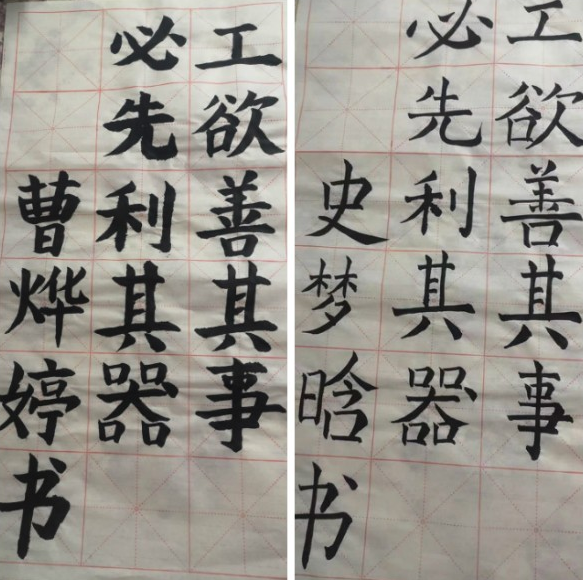 工欲善其事
必先利其器
曹烨婷书
工欲善其事
必先利其器
史梦晗书